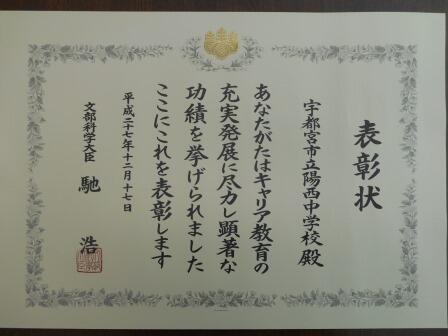 表彰状
宇都宮市立陽西中学校殿
あなたがたはキャリア教育の
充実発展に尽力し顕著な
功績を挙げられました
ここにこれを表彰します
平成二十七年十二月十七日
文部科学大臣 馳 浩